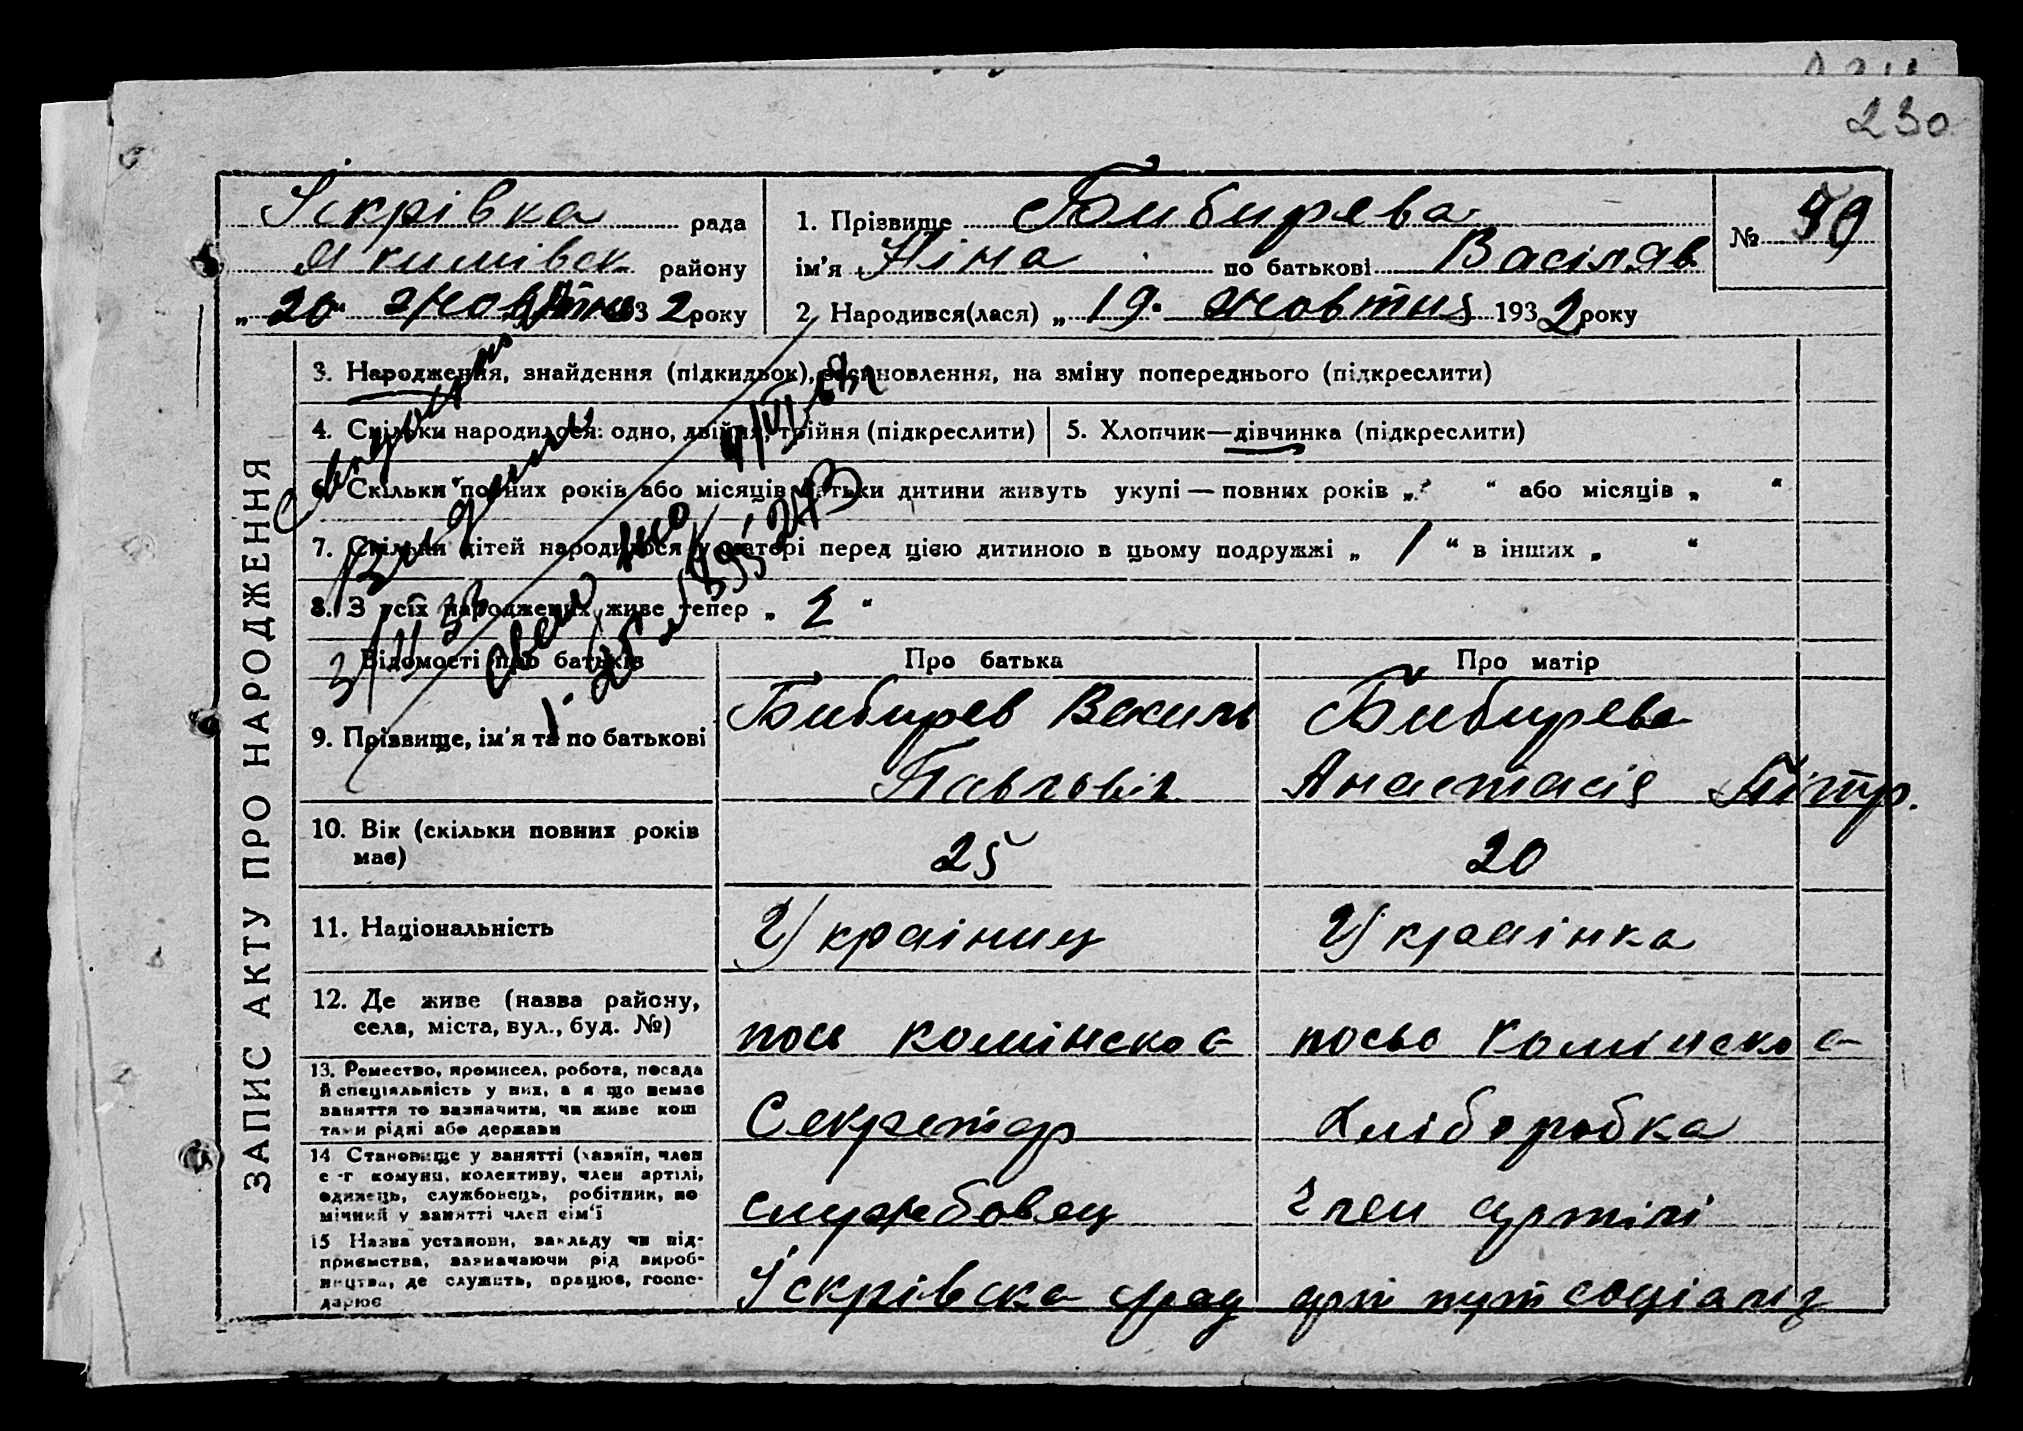 230
Іскрівка рада
Якимівск району
„ 20 “ жовтня 193 2 року
1. Прізвище Бибирева
ім'я Ніна по батькові Васіляв
2. Народився(лася) „ 19 “ жовтня 193 2 року
№ 59
ЗАПИС АКТУ ПРО НАРОДЖЕННЯ
3. Народження, знайдення (підкидьок), усиновлення, на зміну попереднього (підкреслити)
4. Скільки народилося: одно, двійня, трійня (підкреслити)
5. Хлопчик—дівчинка (підкреслити)
6. Скільки повних років або місяців батьки дитини живуть укупі — повних років „ “ або місяців „ “
7. Скільки дітей народилося у матері перед цією дитиною в цьому подружжі „ 1 “ в інших „ “
8. З усіх народжених живе тепер „ 2 “
Відомості про батьків
Про батька
Про матір
9. Прізвище, ім'я та по батькові
Бибирев Василь
Павлвіч
Бибирева
Анастасія Пітр.
10. Вік (скільки повних років
має)
25
20
11. Національність
Украінец
Украінка
12. Де живе (назва району,
села, міста, вул., буд. №)
пось комінское
посьо Комінское
13. Ремество, промисел, робота, посада
й спеціяльність у них, а я що немає
заняття то зазначити, чи живе кош
тами рідні або держави
Секретар
Хліборобка
14 Становище у занятті (хазяїн, член
с -г комуни, колективу, член артілі,
одинець, службовець, робітник, по
мічний у занятті член сім'ї
служебовец
Член артілі
15 Назва установи, закладу чи під-
приємства, зазначаючи рід вироб-
ництва, де служить, працює, госпо-
дарює
Іскрівска срад
арт пут соціаліз